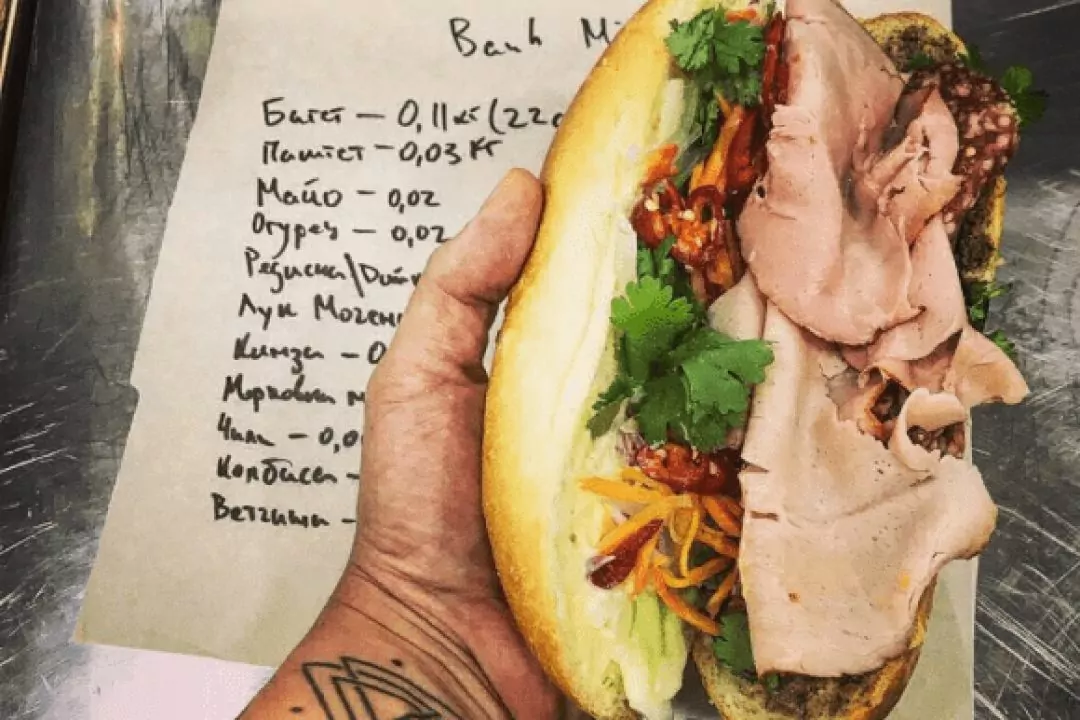 Banh Mi
Багет – 0,11кг (22с
Паштет – 0,03 кг
Майо – 0,02
Огурец – 0,02
Редиска/Дайк
Лук Мочен
Кинза – 0
Морковка м
Чили – 0,0
Колбаса –
Ветчина –